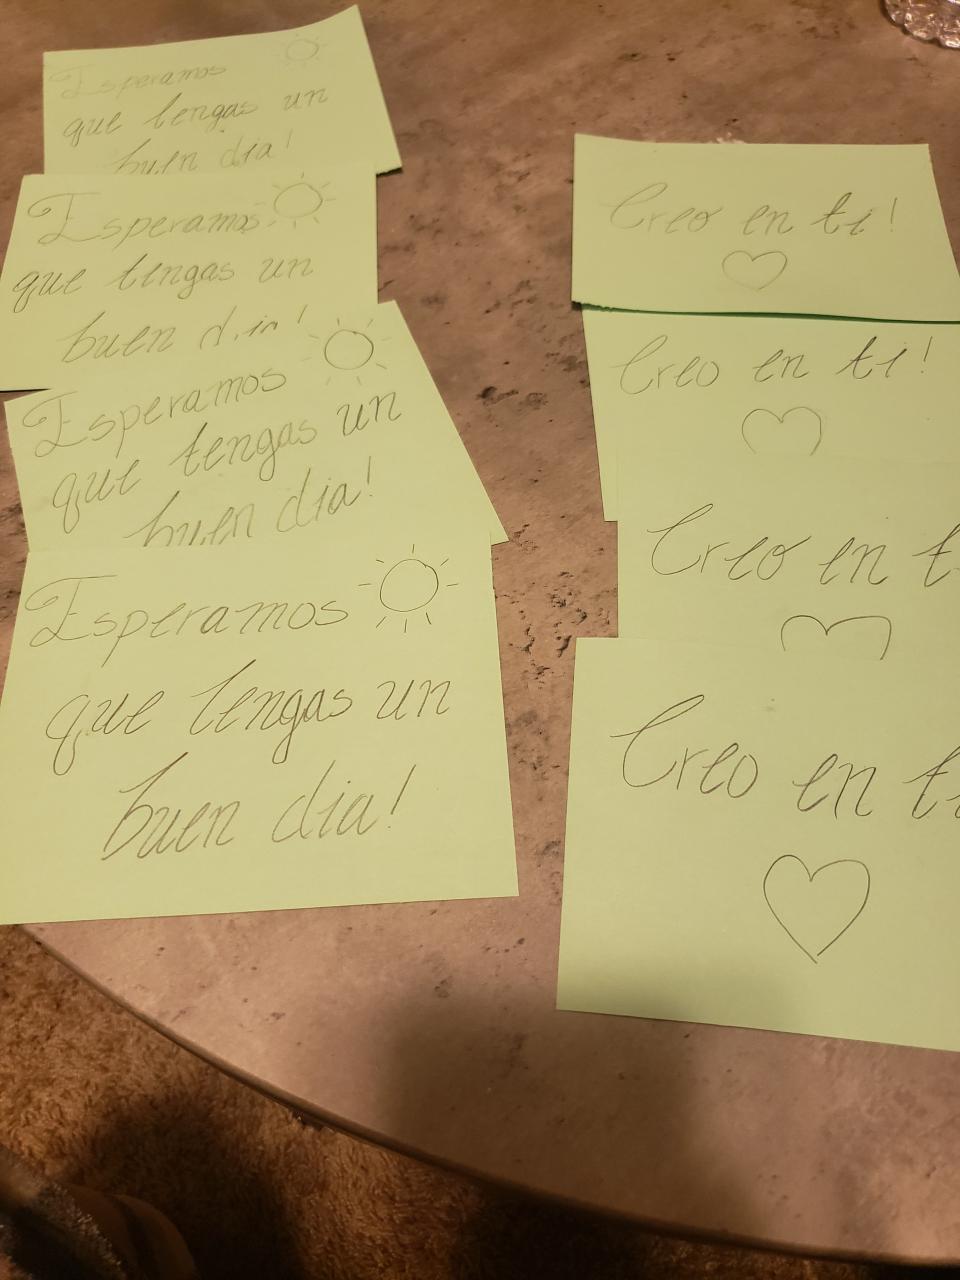 Esperamos
que tengas un
buen dia!
Esperamos
que tengas un
buen dia!
Esperamos
que tengas un
buen dia!
Esperamos
que tengas un
buen dia!
Creo en ti!
Creo en ti!
Creo en t
Creo en ti